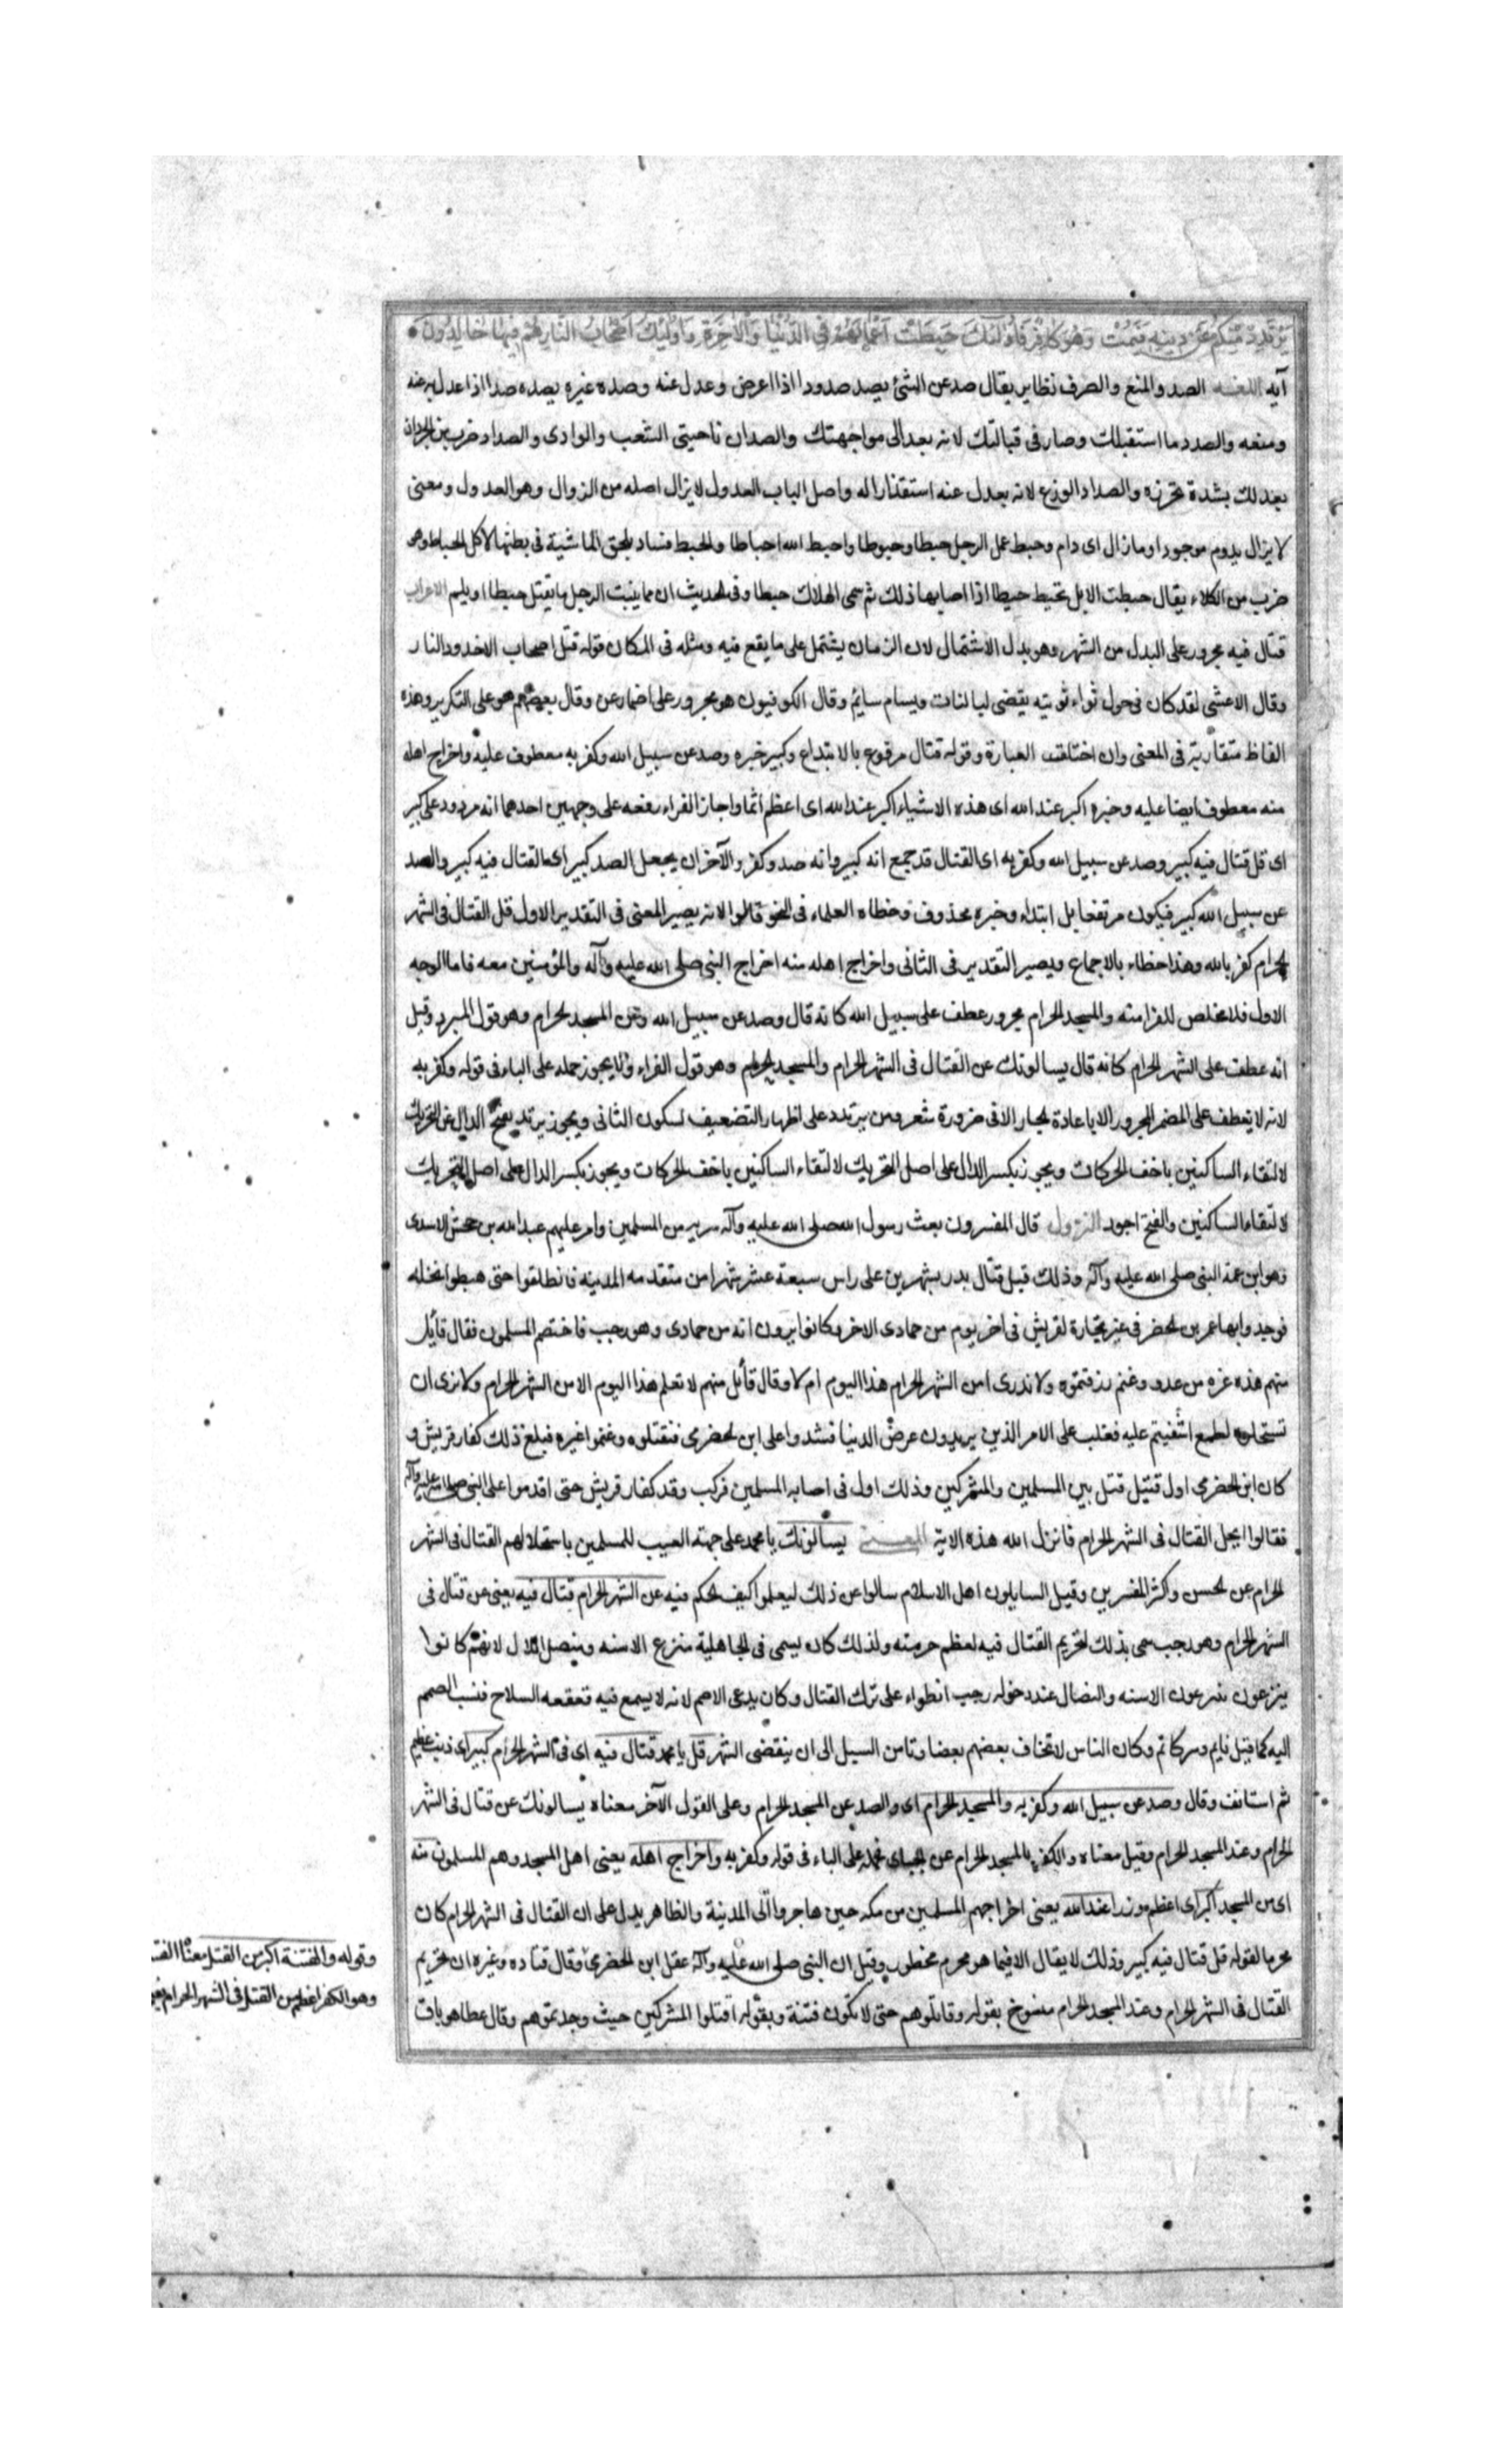 يَرْتَدِدْ مِنْكُمْ عَنْ دِينِهِ فَيَمُتْ وَهُوَ كَافِرٌ فَأُولٰئِكَ حَبِطَتْ أَعْمَالُهُمْ فِي الدُّنْيَا وَالْآخِرَةِ وَأُولٰئِكَ أَصْحَابُ النَّارِ هُمْ فِيهَا خَالِدُونَ
آيه اللغـه الصد والمنع والصرف نظاير يقال صد عن الشئ يصد صدودا اذا اعرض وعدل عنه وصده غيره يصده صدا اذا عدل به عنه
ومنعه والصدد ما استقبلك وصار فى قبالتك لانه يعد الى مواجهتك والصدان ناحيتى الشعب والوادى والصداد ضرب من الجردان
يعدلك بشدة تحرزه والصداد الوزغ لانه يعدل عنه استقذارا له واصل الباب العدول لا يزال اصله من الزوال وهو العدول ومعنى
لا يزال يدوم موجودا وما زال اى دام وحبط عمل الرجل حبطا وحبوطا واحبط الله احباطا والحبط فساد يلحق الماشية فى بطنها لاكل الحباط وهو
ضرب من الكلاء يقال حبطت الابل تحبط حبطا اذا اصابها ذلك ثم سمى الهلاك حبطا وفى الحديث ان مما ينبت الربيع ما يقتل حبطا او يلم الاعراب
قتال فيه مجرور على البدل من الشهر وهو بدل الاشتمال لان الزمان يشتمل على ما يقع فيه ومثله فى المكان قوله قتل اصحاب الاخدود النار
وقال الاعشى لقد كان فى حول ثواء ثويته يقضى لبانات ويسام سايم وقال الكوفيون هو مجرور على اضمار عن وقال بعضهم هو على التكرير وهذه
الفاظ متقاربة فى المعنى وان اختلفت العبارة وقوله قتال مرفوع بالابتداء وكبير خبره وصد عن سبيل الله وكفر به معطوف عليه واخراج اهله
منه معطوف ايضا عليه وخبره اكبر عند الله اى هذه الاشياء اكبر عند الله اى اعظم اثما واجاز الفراء رفعه على وجهين احدهما انه مردود على كبير
اى قل قتال فيه كبير وصد عن سبيل الله وكفر به اى القتال قد جمع انه كبير وانه صد وكفر والآخر ان يجعل الصد كبير اى القتال فيه كبير والصد
عن سبيل الله كبير فيكون مرتفعا بل ابتداء وخبره محذوف وخطاه العلماء فى النحو قالوا لانه يصير المعنى فى التقدير الاول قل القتال فى الشهر
الحرام كفر بالله وهذا خطاء بالاجماع ويصير التقدير فى الثانى واخراج اهله منه اخراج النبى صلى الله عليه وآله والمؤمنين معه فاما الوجه
الاول فلا مخلص للفرا منه والمسجد الحرام مجرور عطف على سبيل الله كانه قال وصد عن سبيل الله وعن المسجد الحرام وهو قول المبرد وقيل
انه عطف على الشهر الحرام كانه قال يسالونك عن القتال فى الشهر الحرام والمسجد الحرام وهو قول الفراء ولا يجوز حمله على الباء فى قوله وكفر به
لانه لا يعطف على المضمر المجرور الا باعادة الجار الا فى ضرورة شعر ومن يرتدد على اظهار التضعيف لسكون الثانى ويجوز يرتد بفتح الدال عن التحريك
لالتقاء الساكنين باخف الحركات ويجوز بكسر الدال على اصل التحريك لالتقاء الساكنين باخف الحركات ويجوز بكسر الدال على اصل التحريك
لالتقاء الساكنين والفتح اجود النزول قال المفسرون بعث رسول الله صلى الله عليه وآله سريه من المسلمين وامر عليهم عبد الله بن جحش الاسدى
وهو ابن عمة النبى صلى الله عليه وآله وذلك قبل قتال بدر بشهرين على راس سبعة عشر شهرا من مقدمه المدينه فانطلقوا حتى هبطوا نخله
فوجدوا بها عمر بن الحضرمى فى عير تجارة لقريش فى اخر يوم من جمادى الاخر وكانوا يرون انه من جمادى وهو رجب فاختصم المسلمون فقال قائل
منهم هذه غره من عدو وغنم رزقتموه ولا ندرى امن الشهر الحرام هذا اليوم ام لا وقال قائل منهم لا نعلم هذا اليوم الا من الشهر الحرام ولا نرى ان
تستحلوه لطمع اشفيتم عليه فغلب على الامر الذين يريدون عرض الدنيا فشدوا على ابن الحضرمى فقتلوه وغنموا عيره فبلغ ذلك كفار قريش و
كان ابن الحضرمى اول قتيل قتل بين المسلمين والمشركين وذلك اول فى اصابه المسلمين فركب وفد كفار قريش حتى اقدموا على النبى صلى الله عليه وآله
فقالوا ايحل القتال فى الشهر الحرام فانزل الله هذه الاية المعـنى يسالونك يا محمد على جهته العيب للمسلمين باستحلالهم القتال فى الشهر
الحرام عن الحسن وكثر المفسرين وقيل السايلون اهل الاسلام سالوا عن ذلك ليعلموا كيف الحكم فيه عن الشهر الحرام قتال فيه يعنى عن قتال فى
الشهر الحرام وهو رجب سمى بذلك لتحريم القتال فيه لعظم حرمته ولذلك كان يسمى فى الجاهلية منزع الاسنه ومنصل الال لانهم كانوا
ينزعون الاسنه والنصال عند دخول رجب انطواء على ترك القتال وكان يدعى الاصم لانه لا يسمع فيه قعقعه السلاح فنسب الصمم
اليه كما قيل نايم وسر كاتم وكان الناس لا تخاف بعضهم بعضا وتامن السبل الى ان ينقضى الشهر قل يا محمد قتال فيه اى فى الشهر الحرام كبير اى ذنب عظيم
ثم استانف وقال وصد عن سبيل الله وكفر به والمسجد الحرام اى والصد عن المسجد الحرام وعلى القول الآخر معناه يسالونك عن قتال فى الشهر
الحرام وعند المسجد الحرام وقيل معناه والكفر بالمسجد الحرام عن الجبائى فحمله على الباء فى قوله وكفر به واخراج اهله يعنى اهل المسجد وهم المسلمون منه
اى من المسجد اكبر اى اعظم وزرا عند الله يعنى اخراجهم المسلمين من مكه حين هاجروا الى المدينة والظاهر يدل على ان القتال فى الشهر الحرام كان
محرما لقوله قل قتال فيه كبير وذلك لا يقال الا فيما هو محرم محظور وقيل ان النبى صلى الله عليه وآله عقل ابن الحضرمى وقال قتاده وغيره ان تحريم
القتال فى الشهر الحرام وعند المسجد الحرام منسوخ بقوله وقاتلوهم حتى لا تكون فتنة وبقوله اقتلوا المشركين حيث وجدتموهم وقال عطا هو باق
وقوله والفتنة اكبر من القتل معناه
وهو الكفر اعظم من القتل فى الشهر الحرام